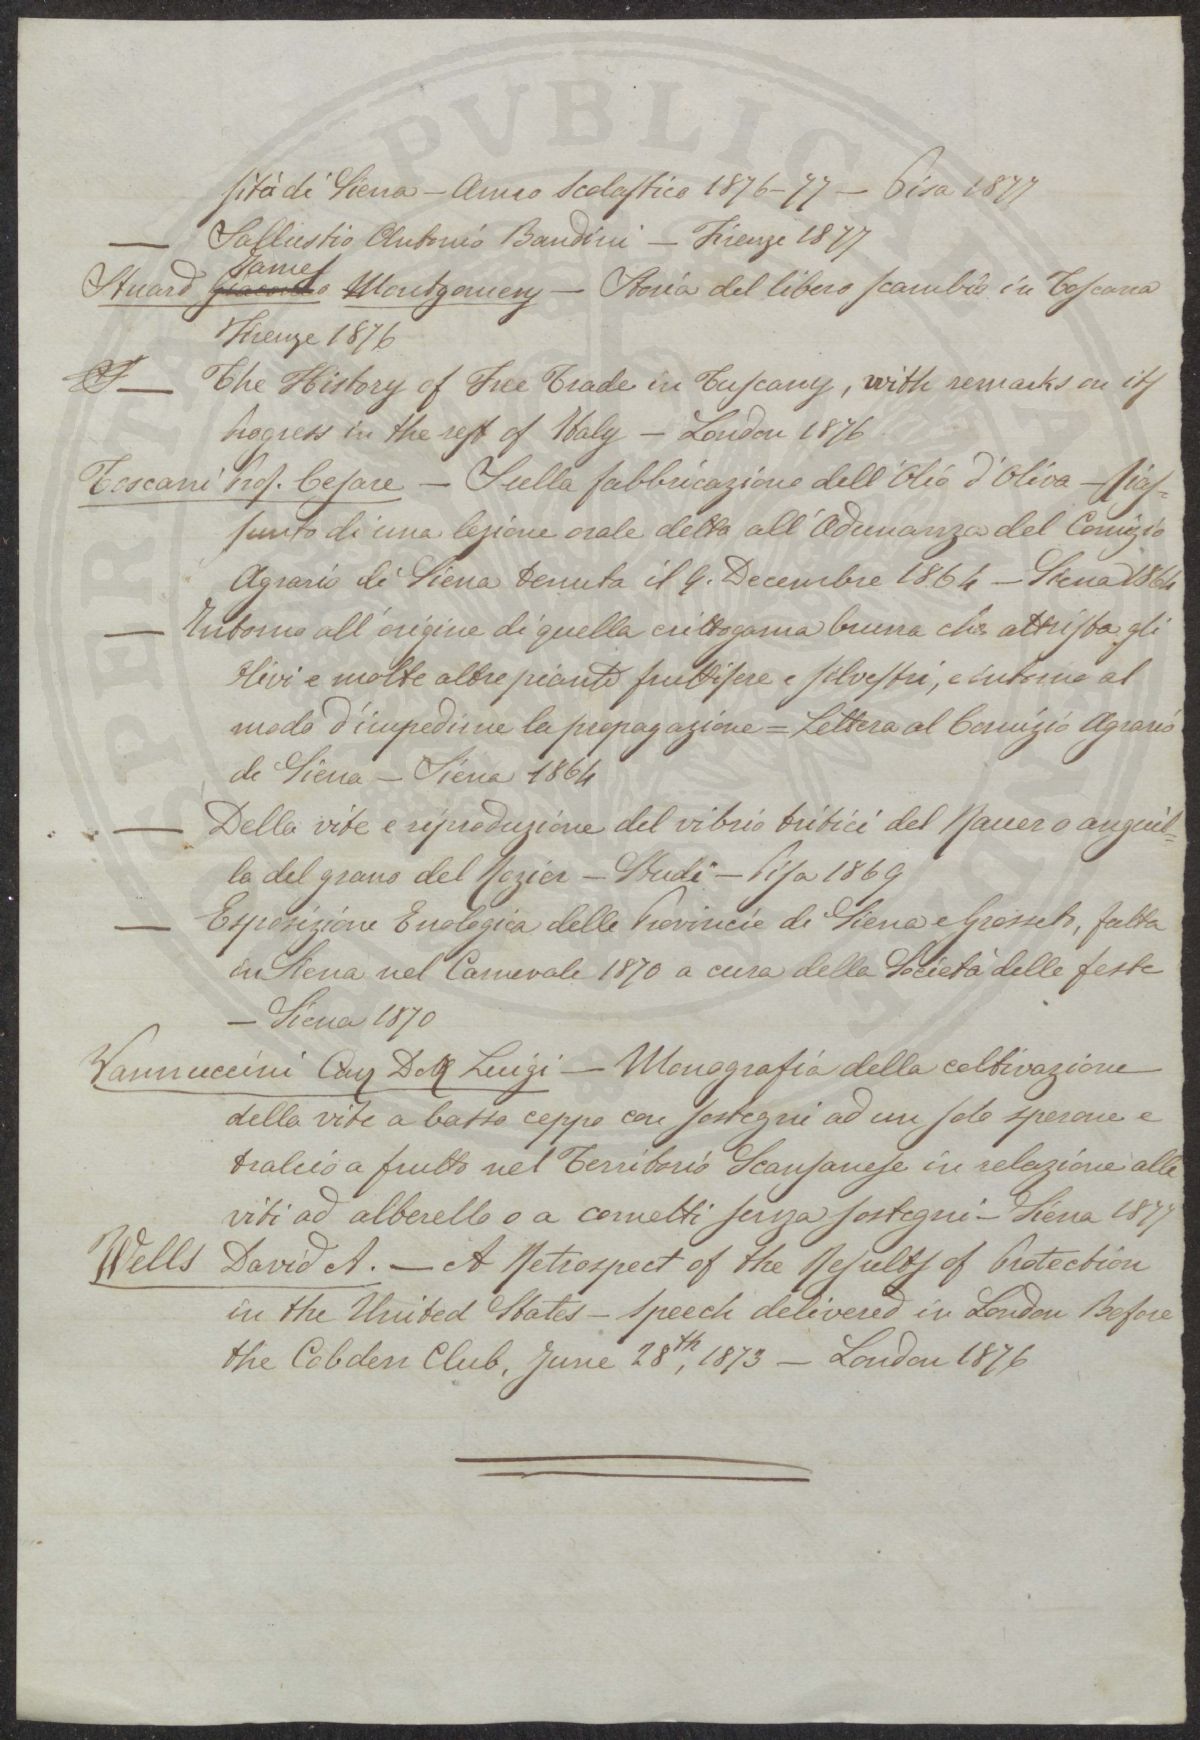 sità di Siena — Anno Scolastico 1876-77 — Pisa 1877
— Sallustio Antonio Bandini — Firenze 1877
James
Stuard Giacomo Montgomery — Storia del libero scambio in Toscana
Firenze 1876
— The History of Free Trade in Tuscany, with remarks on its
progress in the rest of Italy — London 1876
Toscani Prof. Cesare — Sulla fabbricazione dell'Olio d'Oliva — Rias=
sunto di una lezione orale detta all'Adunanza del Comizio
Agrario di Siena tenuta il 9. Decembre 1864 — Siena 1864
— Intorno all'origine di quella crittogama bruna che attrista gli
olivi e molte altre piante fruttifere e silvestri, e intorno al
modo d'impedirne la propagazione = Lettera al Comizio Agrario
di Siena — Siena 1864
— Della vita e riproduzione del vibrio tritici del Bauer o anguil=
la del grano del Rozier — Studi — Pisa 1869
— Esposizione Enologica delle Provincie di Siena e Grosseto, fatta
in Siena nel Carnevale 1870 a cura della Società delle feste
— Siena 1870
Vannuccini Cav Dott Luigi — Monografia della coltivazione
della vite a basso ceppo con sostegni ad un solo sperone e
tralcio a frutto nel Territorio Scansanese in relazione alle
viti ad alberello o a cornetti senza sostegni — Siena 1877
Wells David A. — A Retrospect of the Results of Protection
in the United States — speech delivered in London Before
the Cobden Club, June 28th, 1873 — London 1876